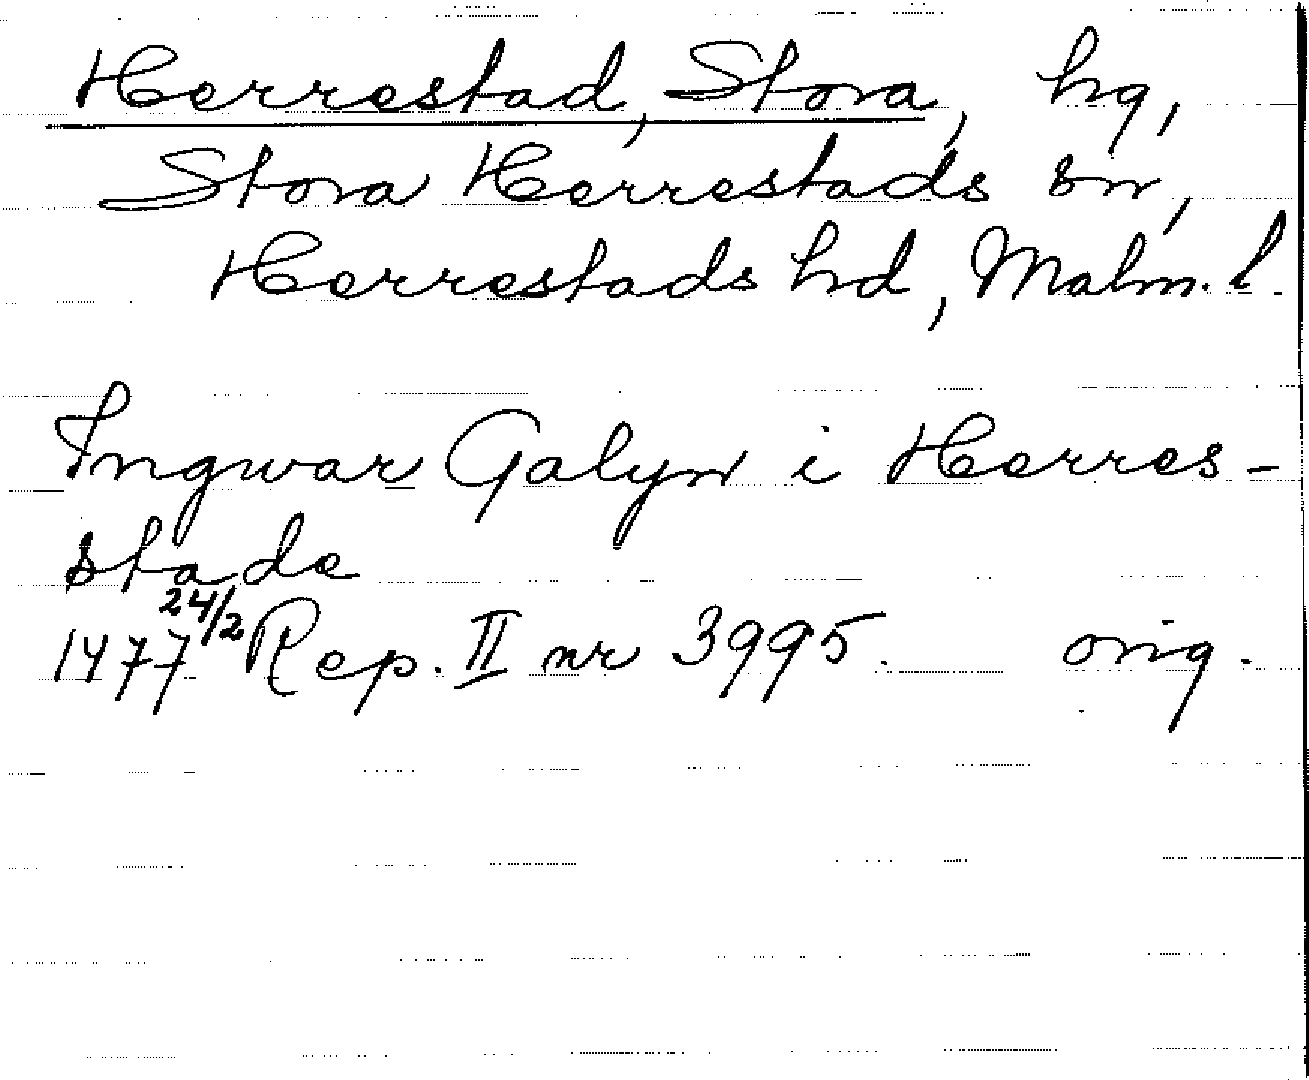 Herrestad, Stora, hg,
Stora Herrestads sn,
Herrestads hd, Malm. l.
Ingwar Galyn i Herres-
stade
1477 24/2 Rep. II nr 3995. orig.